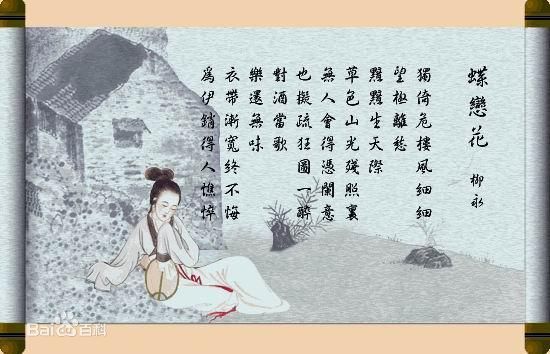 蝶戀花
柳永
獨倚危樓風細細
望極離愁
黯黯生天際
草色山光殘照裏
無人會得憑闌意
也擬疏狂圖一醉
對酒當歌
樂還無味
衣帶漸寬終不悔
爲伊銷得人憔悴
Bai du 百科